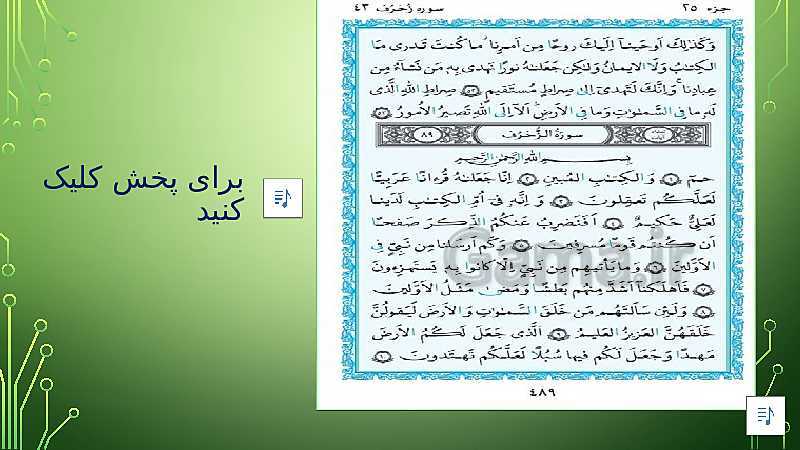 جزء ۲۵
سوره زُخرُف ۴۳
وَكَذٰلِكَ اَوحَينآ اِلَيكَ روحًا مِن اَمرِنا ما كُنتَ تَدرى مَا
الكِتٰبُ وَلَا الايمانُ وَلٰكِن جَعَلنٰهُ نورًا نَهدى بِهٖ مَن نَشآءُ مِن
عِبادِنا وَ اِنَّكَ لَتَهدىٓ اِلىٰ صِراطٍ مُستَقيمٍ ۵۲ صِراطِ اللهِ الَّذى
لَهٗ ما فِى السَّمٰوٰتِ وَما فِى الاَرضِ اَلآ اِلَى اللهِ تَصيرُ الاُمورُ ۵۳
سورة الزُّخرُف
۸۹
بِسمِ اللهِ الرَّحمٰنِ الرَّحيمِ
حمٓ ۱ وَ الكِتٰبِ المُبينِ ۲ اِنّا جَعَلنٰهُ قُرءٰنًا عَرَبِيًّا
لَعَلَّكُم تَعقِلونَ ۳ وَ اِنَّهٗ فىٓ اُمِّ الكِتٰبِ لَدَينا
لَعَلِىٌّ حَكيمٌ ۴ اَفَنَضرِبُ عَنكُمُ الذِّكرَ صَفحًا
اَن كُنتُم قَومًا مُسرِفينَ ۵ وَكَم اَرسَلنا مِن نَبِىٍّ فِى
الاَوَّلينَ ۶ وَما يَأتيهِم مِن نَبِىٍّ اِلّا كانوا بِهٖ يَستَهزِءونَ
۷ فَاَهلَكنآ اَشَدَّ مِنهُم بَطشًا وَمَضىٰ مَثَلُ الاَوَّلينَ
۸ وَلَئِن سَاَلتَهُم مَن خَلَقَ السَّمٰوٰتِ وَ الاَرضَ لَيَقولُنَّ
خَلَقَهُنَّ العَزيزُ العَليمُ ۹ اَلَّذى جَعَلَ لَكُمُ الاَرضَ
مَهدًا وَ جَعَلَ لَكُم فيها سُبُلًا لَعَلَّكُم تَهتَدونَ ۱۰
۴۸۹
Gama.ir
برای پخش کلیک
کنید